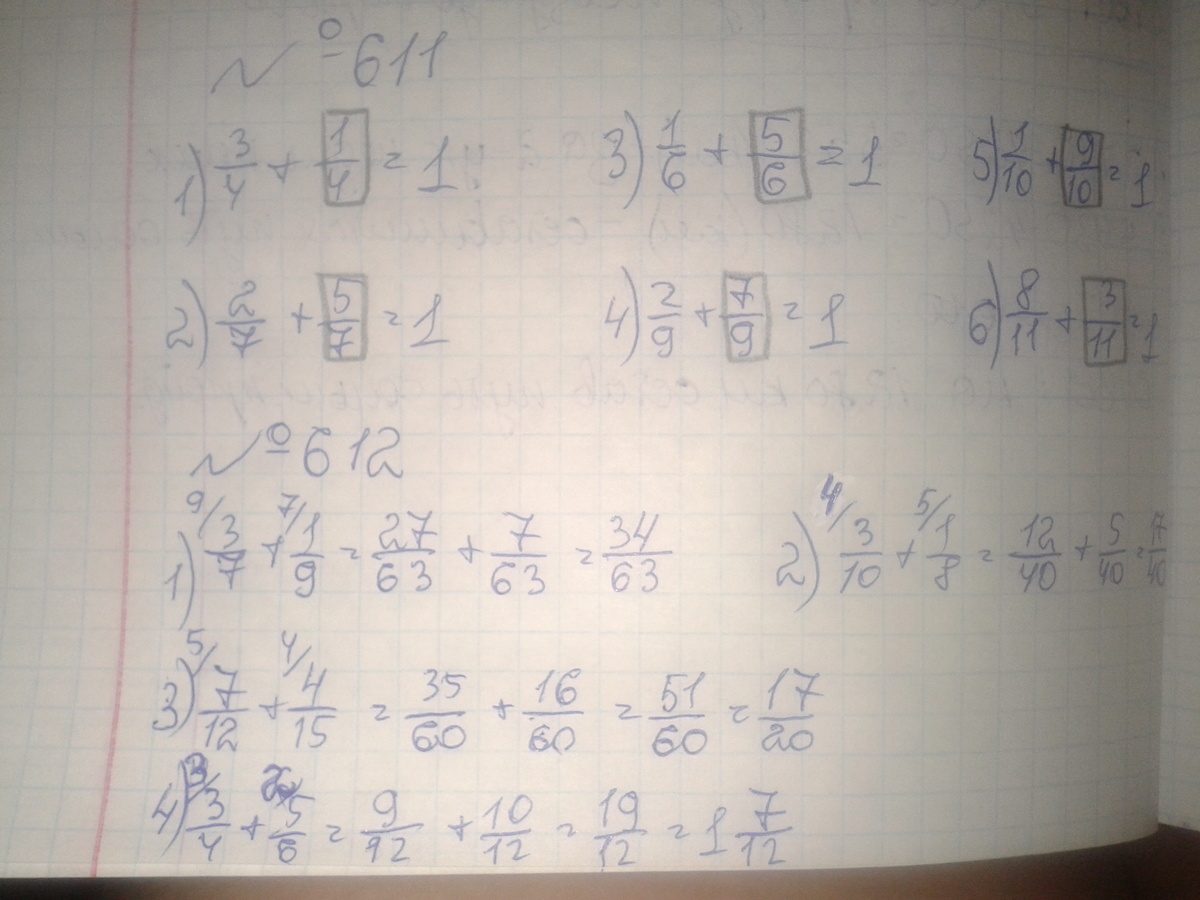 №611
1) 3/4 + 1/4 = 1 3) 1/6 + 5/6 = 1 5) 1/10 + 9/10 = 1
2) 2/7 + 5/7 = 1 4) 2/9 + 7/9 = 1 6) 8/11 + 3/11 = 1
№612
1) 9/ 3/7 + 7/ 1/9 = 27/63 + 7/63 = 34/63 2) 4/ 3/10 + 5/ 1/8 = 12/40 + 5/40 = 17/40
3) 5/ 7/12 + 4/ 4/15 = 35/60 + 16/60 = 51/60 = 17/20
4) 3/ 3/4 + 2/ 5/6 = 9/12 + 10/12 = 19/12 = 1 7/12